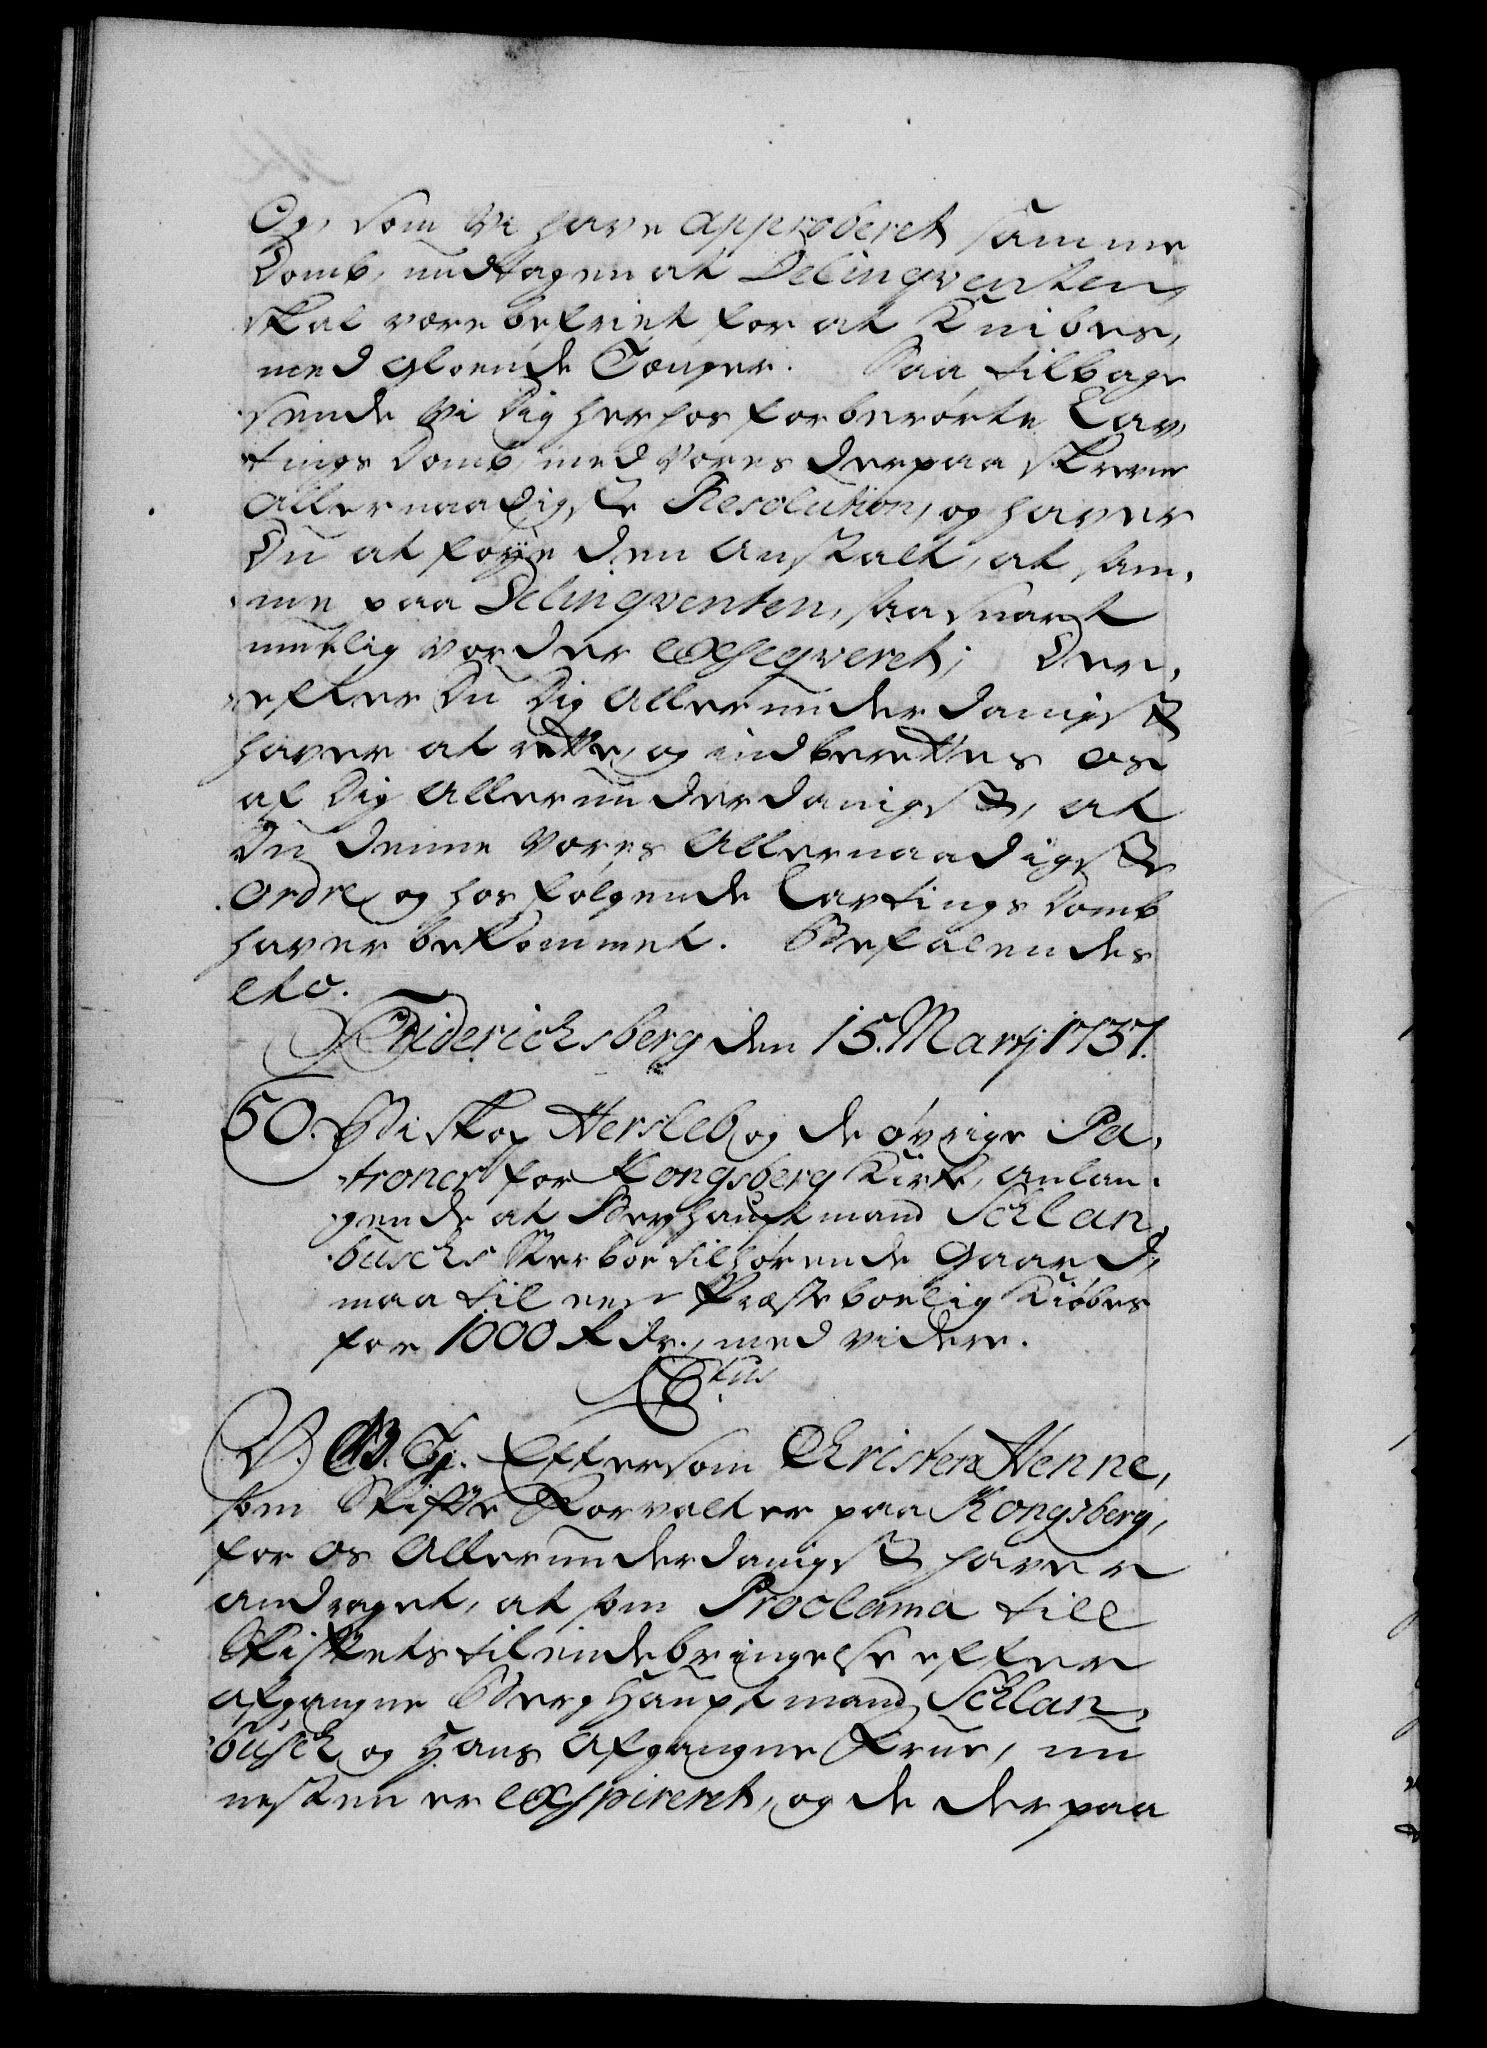 Og, som Vi have approberet samme
Domb, undtagen at Delinqventen,
skal være befriet for at Knibes,
med gloende Tænger. Saa tilbage
sende Vi Dig herhos forberørte Lav,
tings Domb, med Vores derpaa skrevne
Allernaadigste Resolution, og haver
Du at føye den Anstalt, at sam,
me paa Delinqventen, saa snart
muelig vorder exseqveret; Der,
efter Du Dig Allerunderdanigst
haver at rette, og indberettes os
af Dig Allerunderdanigst, at
Du denne Vores Allernaadigste
Ordre, og hosfølgende Lavtings Domb
haver bekommet. Befalendes
etc.
Friderichsberg den 15. Martj 1737.
50. Biskop Hersleb og de øvrige Pa,
troner for Kongsberg Kirke, anlan,
gende at Berghauptmand Schlan,
buschs Sterboe tilhørende Gaard,
maa til een Præsteboelig Kiøbes
for 1000 Rdr., med videre.
Ctus
V. G. T. Eftersom Christen Henne,
som Skifte Forvalter paa Kongsberg,
for os Allerunderdanigst haver
andraget, at som Proclama till
Skiftets tilendebringelse efter
afgangne Berghauptmand Schlan,
busch og Hans afgangne Frue, nu
nesten er exspireret, og de derpaa